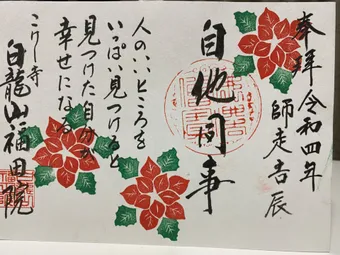 奉拝
令和四年
師走吉辰
自他同事
人のいいところを
いっぱい見つけると
見つけた自分が
幸せになる
こけし寺
白龍山福田院